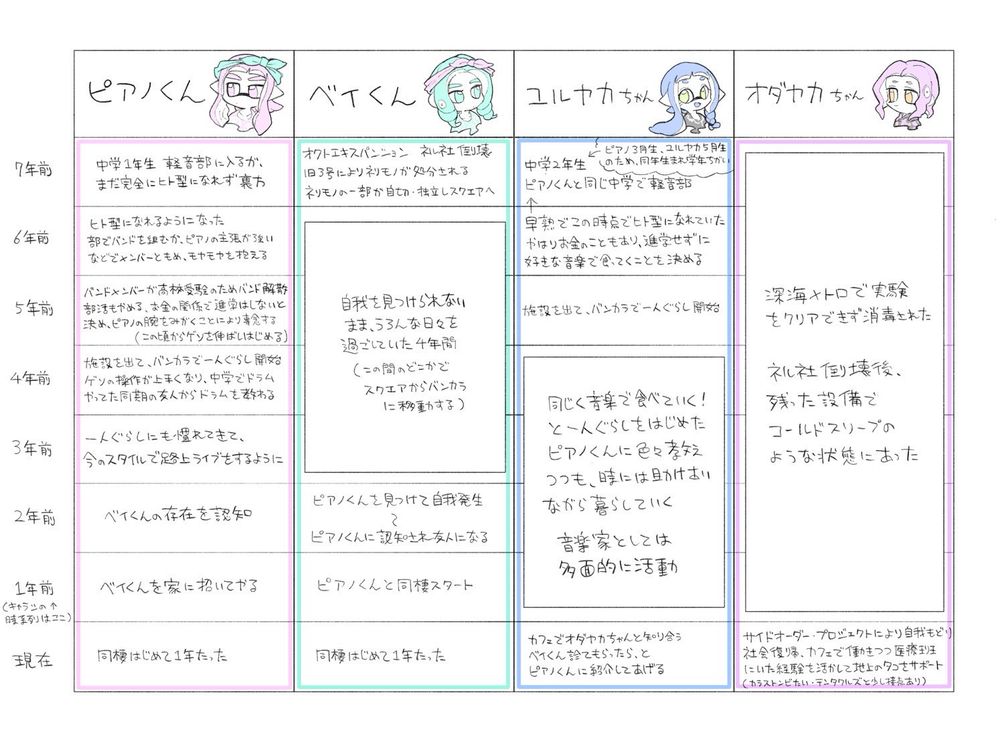 ピアノくん
ベイくん
ユルヤカちゃん
オダヤカちゃん
7年前
中学1年生 軽音部に入るが、
まだ完全にヒト型になれず裏方
オクトエキスパンション ネル社倒壊
旧3号によりネリモノが処分される
ネリモノの一部が自切・独立しスクエアへ
中学2年生
ピアノ3月生、ユルヤカ5月生
のため、同年生まれ学年ちがい
ピアノくんと同じ中学で軽音部
6年前
ヒト型になれるようになった
部でバンドを組むが、ピアノの主張が強い
などでメンバーともめ、モヤモヤを抱える
早熟でこの時点でヒト型になれていた
やはりお金のこともあり、進学せずに
好きな音楽で食ってくことを決める
5年前
バンドメンバーが高校受験のためバンド解散
部活もやめる、お金の関係で進学はしないと
決め、ピアノの腕をみがくことにより専念する
(この頃からゲソを伸ばしはじめる)
施設を出て、バンカラで一人ぐらし開始
4年前
施設を出て、バンカラで一人ぐらし開始
ゲソの操作が上手くなり、中学でドラム
やってた同期の友人からドラムを教わる
3年前
一人ぐらしにも慣れてきて、
今のスタイルで路上ライブをするように
自我を見つけられない
まま、うろんな日々を
過ごしていた4年間
(この間のどこかで
スクエアからバンカラ
に移動する)
2年前
ベイくんの存在を認知
ピアノくんを見つけて自我発生
〜
ピアノくんに認知され友人になる
同じく音楽で食べていく!
と一人ぐらしをはじめた
ピアノくんに色々教え
つつも、時には助けあい
ながら暮らしていく
音楽家としては
多面的に活動
1年前
(キャラシの↑
時系列はここ)
ベイくんを家に招いてやる
ピアノくんと同棲スタート
深海メトロで実験
をクリアできず消毒された
ネル社倒壊後、
残った設備で
コールドスリープの
ような状態にあった
現在
同棲はじめて1年たった
同棲はじめて1年たった
カフェでオダヤカちゃんと知り合う
ベイくん診てもらったら、と
ピアノくんに紹介してあげる
サイドオーダー・プロジェクトにより自我もどり
社会復帰、カフェで働きつつ医療班
にいた経験を活かして地上のタコをサポート
(カラストンビたい・テンタクルズと少し接点あり)